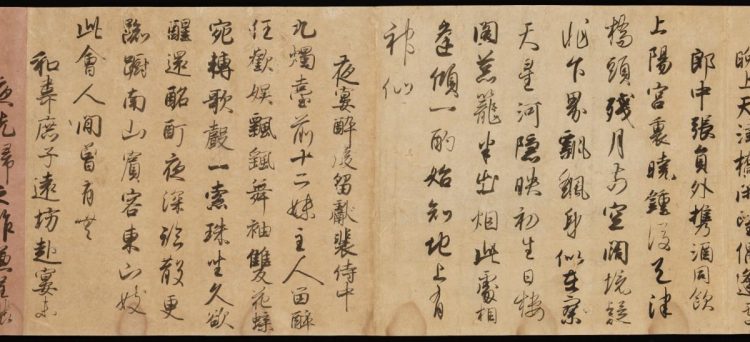 曉上天津橋閒望偶逢盧
郎中張員外攜酒同飲
上陽宮裏曉鐘後天津
橋頭殘月前空闊境疑
非下界飄颻身似在寥
天星河隱映初生日樓
閣葱蘢半出烟此處相
逢傾一酌始知地上有
神仙
夜宴醉後留獻裴侍中
九燭臺前十二姝主人留醉
任歡娛飄颻舞袖雙飛蝶
宛轉歌聲一索珠坐久欲
醒還酩酊夜深散更
踟躕南山賓客東山妓
此會人間曾有無
和韋庶子遠坊赴宴未
夜先歸之作兼呈裴